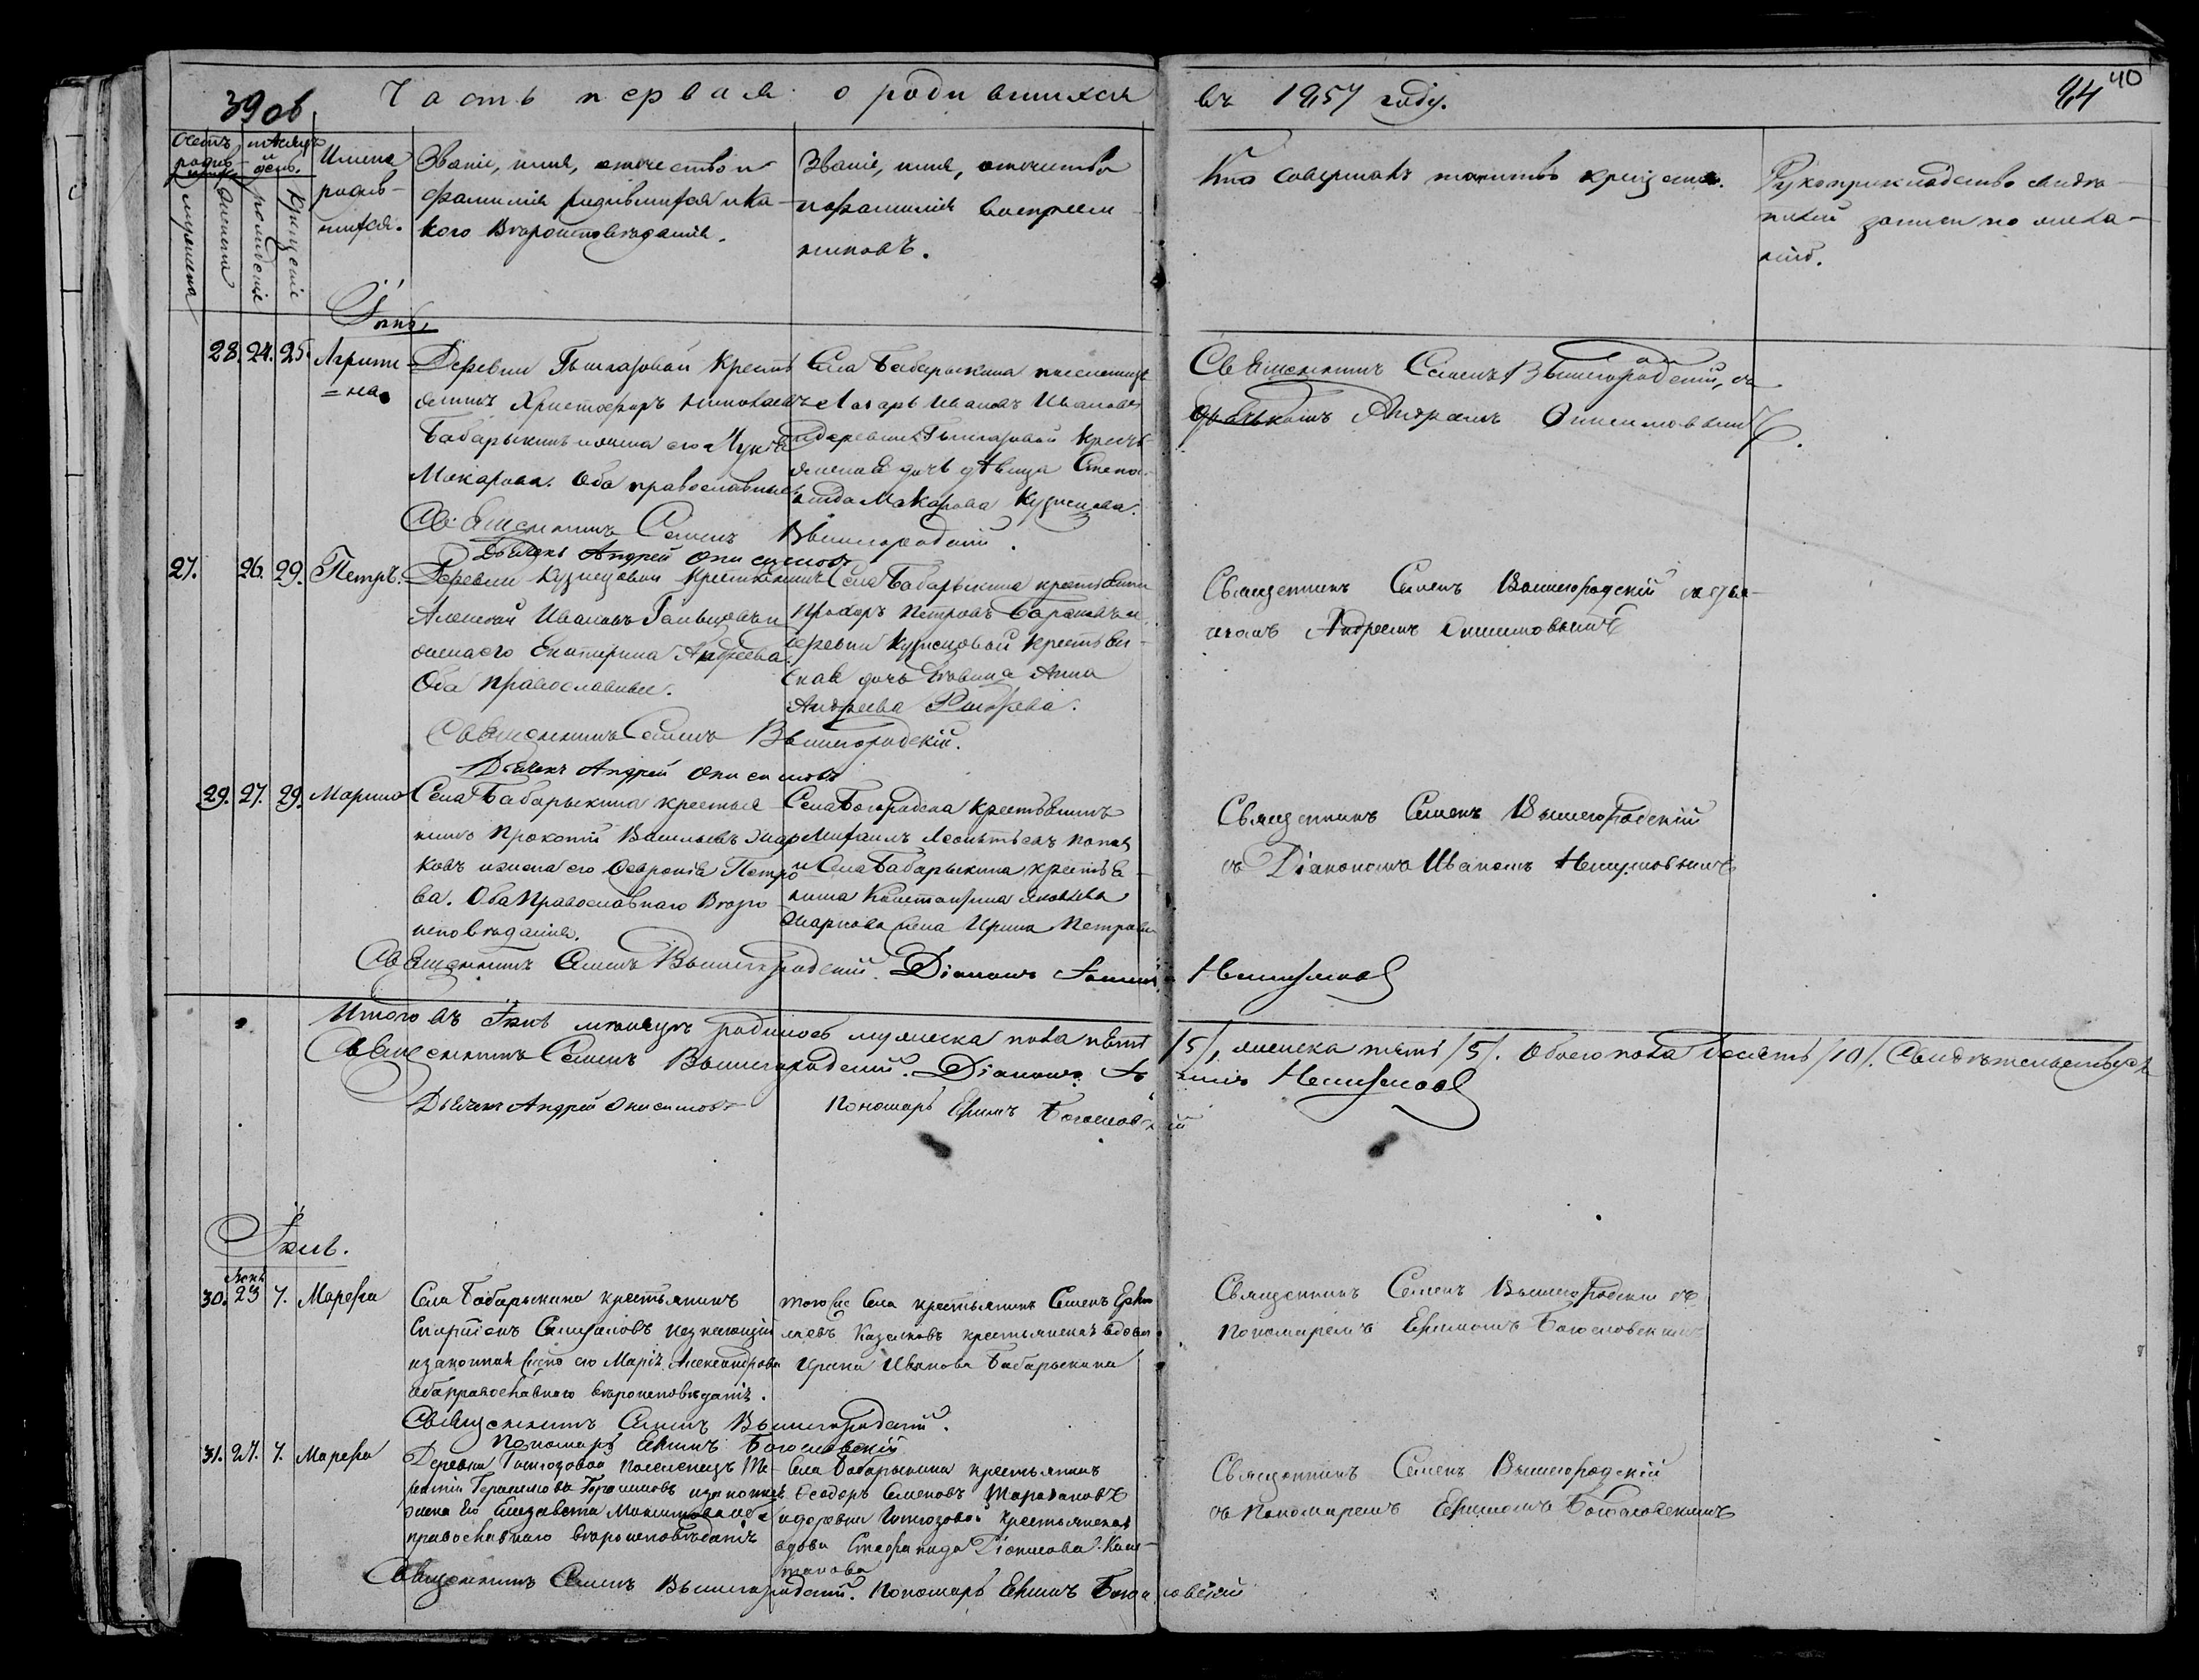 39 об.
Часть первая о родившихся въ 1857 году.
40
Счетъ родив-
мѣсяцъ и день.
Имена родив-
шихся.
мужеска
женска
рожденія
крещенія
Званіе, имя, отечество и
фамилія родившихъ и ка-
кого вѣроисповѣданія.
Званіе, имя, отечество
и фамилія воспріем-
никовъ.
Кто совершалъ таинство крещенія.
Рукоприкладство
записи по жела-
нію.
Іюнь
28. 24. 25. Агрипи-
=на.
Деревни крестья
янинъ Христофоръ Николаевъ
Бабарыкинъ и жена его
Макарова. Оба православные.
Села Бабарыкина поселенецъ
Лазарь Ивановъ Ивановъ
и деревни крестья
янская дочь дѣвица Степа-
нида Макарова Кузнецова.
Священникъ Семенъ Вышегородскій, съ
дьячкомъ Андреемъ Онисимовымъ.
Священникъ Семенъ Вышегородскій.
Дьячекъ Андрей Онисимовъ
27. 26. 29. Петръ.
Деревни Кузнецовой крестьянинъ
Алексей Ивановъ и
жена его Екатерина Андреева.
Оба православные.
Села Бабарыкина крестьянинъ
Прохоръ Петровъ и
деревни Кузнецовой крестьян-
ская дочь дѣвица Анна
Андреева
Священникъ Семенъ Вышегородскій съ дья-
чкомъ Андреемъ Онисимовымъ
Священникъ Семенъ Вышегородскій.
Дьячекъ Андрей Онисимовъ
29. 27. 29. Марина
Села Бабарыкина крестья-
нинъ Прокопій Васильевъ Жар
ковъ и жена его Февронія Петро
ва. Оба православнаго вѣро
исповѣданія.
Села Богородска крестьянинъ
Михаилъ Леонтьевъ Попов
и Села Бабарыкина крестья-
нина Константина Яковлева
Жаркова жена Ирина Петрова
Священникъ Семенъ Вышегородскій
съ Діакономъ Иваномъ
Священникъ Семенъ Вышегородскій. Діаконъ
Итого въ Іюнѣ мѣсяцѣ родилось мужеска пола пять /5/, женска пять /5/. Обоего пола десять /10/. Свидѣтельствуемъ
Священникъ Семенъ Вышегородскій. Діаконъ
Дьячекъ Андрей Онисимовъ Пономарь Ефимъ Богословскій
Іюль.
Іюнь
30. 23 7. Марѳа
Села Бабарыкина крестьянинъ
и законная жена его Марія Александрова
оба православнаго вѣроисповѣданія.
того же Села крестьянинъ Семенъ
Казаковъ крестьянская вдова
Ирина Иванова Бабарыкина
Священникъ Семенъ Вышегородскій съ
Пономаремъ Ефимомъ Богословскимъ
Священникъ Семенъ Вышегородскій.
Пономарь Ефимъ Богословскій
31. 27. 7. Марѳа
Деревни поселенецъ Те-
рентій Герасимовъ Герасимовъ и законная
жена его Елизавета Максимова оба
православнаго вѣроисповѣданія
Села Бабарыкина крестьянинъ
Ѳеодоръ Семеновъ Таракановъ
и деревни крестьянская
вдова Стефанида Діонисова
Священникъ Семенъ Вышегородскій
съ Пономаремъ Ефимомъ Богословскимъ
Священникъ Семенъ Вышегородскій. Пономарь Ефимъ Богословскій